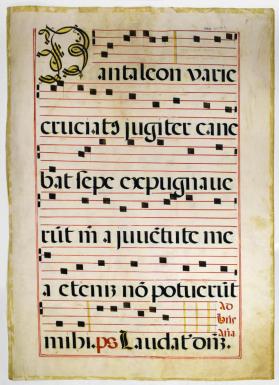 Pantaleon varie
cruciat9 jugiter cane
bat sepe expugnave
rūt m̄ a juvētute me
a eteniz nō potuerūt
mihi. ps Laudat' dn̄z. ad
aña